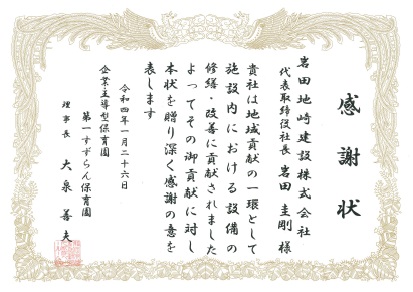 感謝状
岩田地崎建設株式会社
代表取締役社長 岩田 圭剛 様
貴社は地域貢献の一環として
施設内における設備の
修繕・改善に貢献されました
よってその御貢献に対し
本状を贈り深く感謝の意を
表します
令和四年一月二十六日
企業主導型保育園
第一すずらん保育園
理事長 大泉 善夫